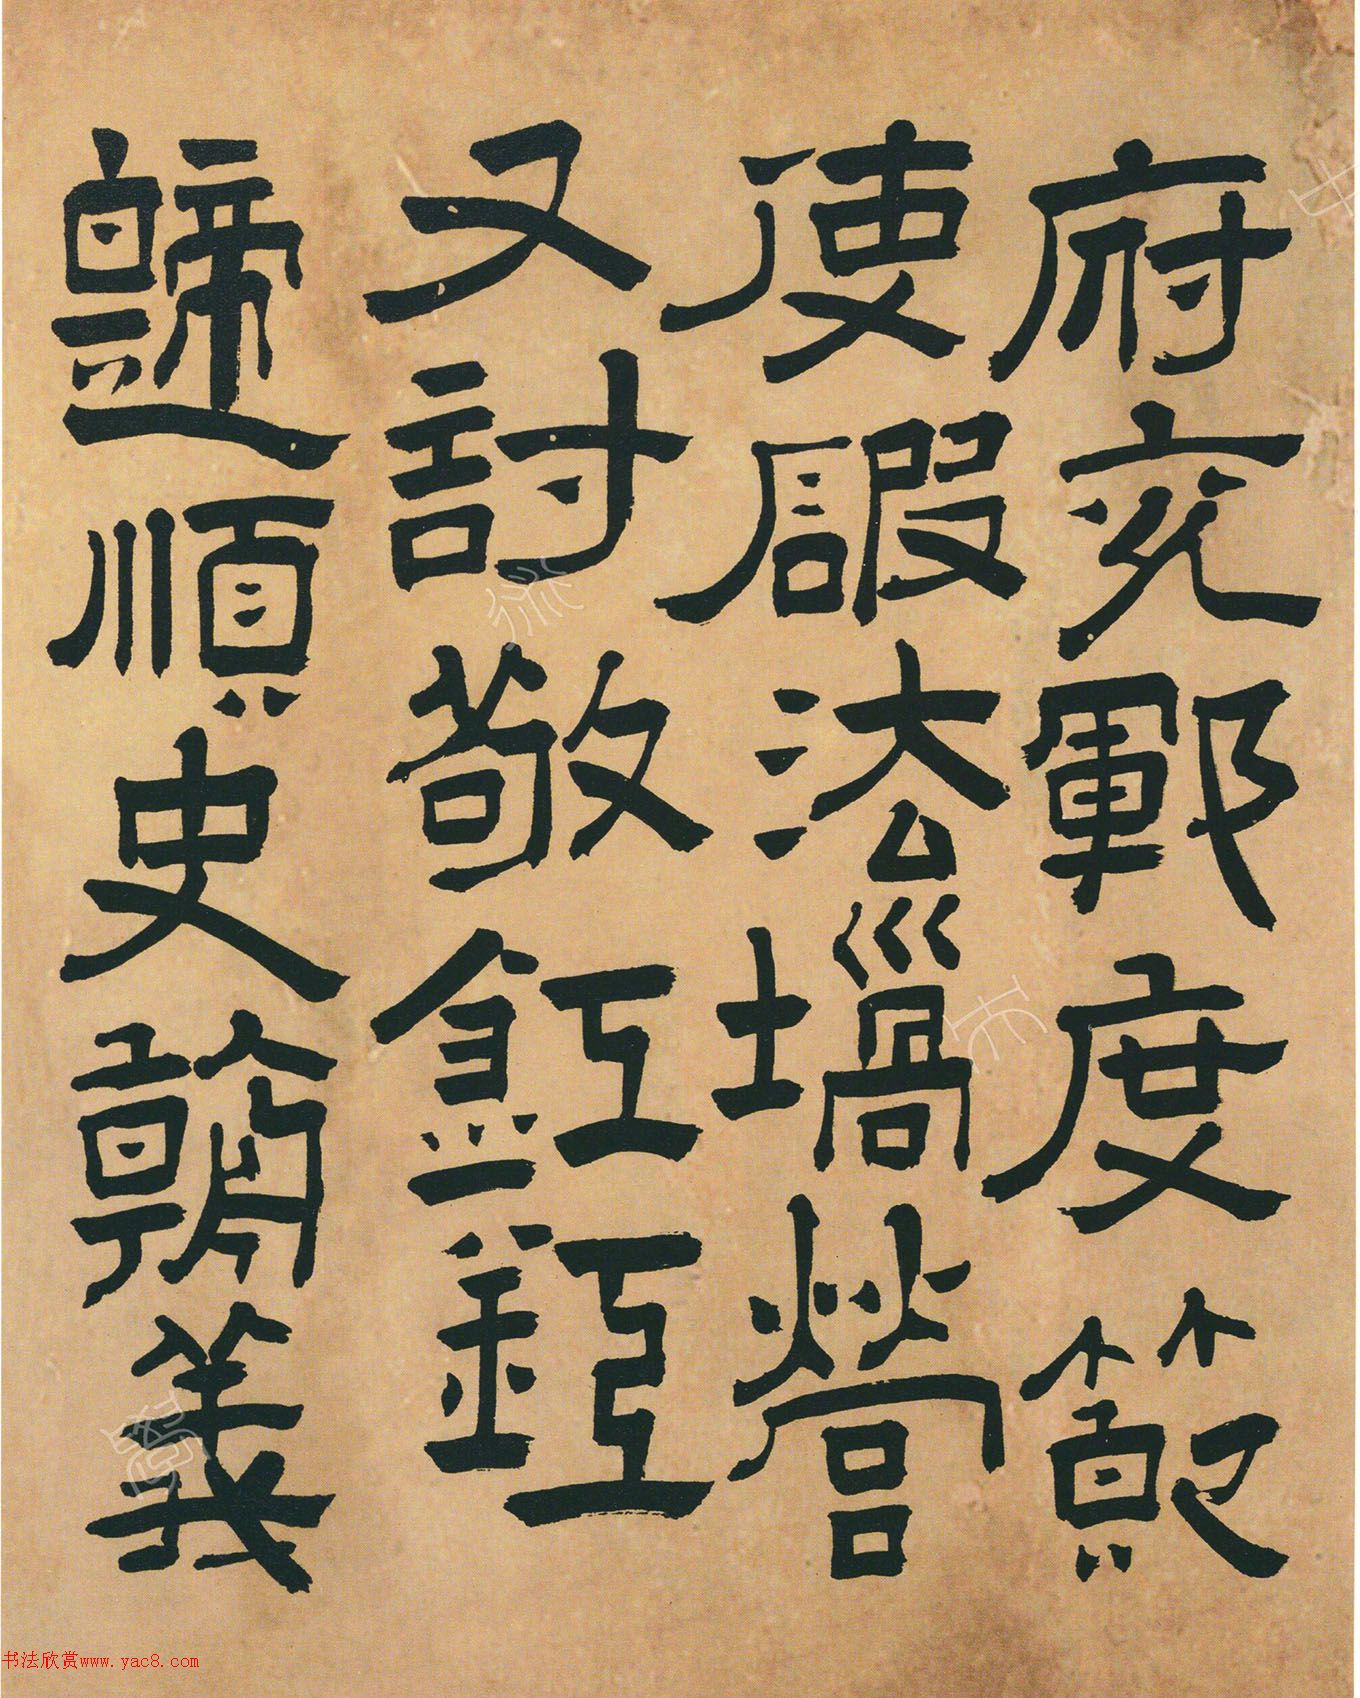 府兗鄆度節
使法營
又討敬釭
歸順史朝義
书法欣赏www.yac8.com